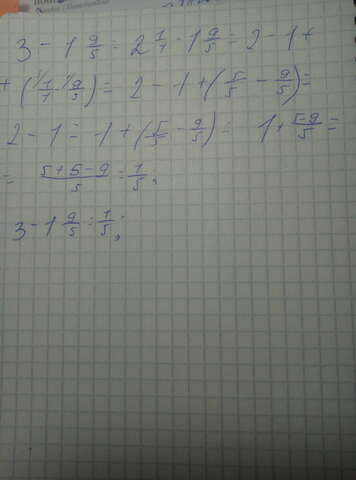 3 - 1 9/5 = 2 1/1 - 1 9/5 = 2 - 1 +
+ (1/1 - 9/5) = 2 - 1 + (5/5 - 9/5) =
2 - 1 = 1 + (5/5 - 9/5) = 1 + 5-9/5 =
= 5+5-9/5 = 1/5;
3 - 1 9/5 = 1/5;